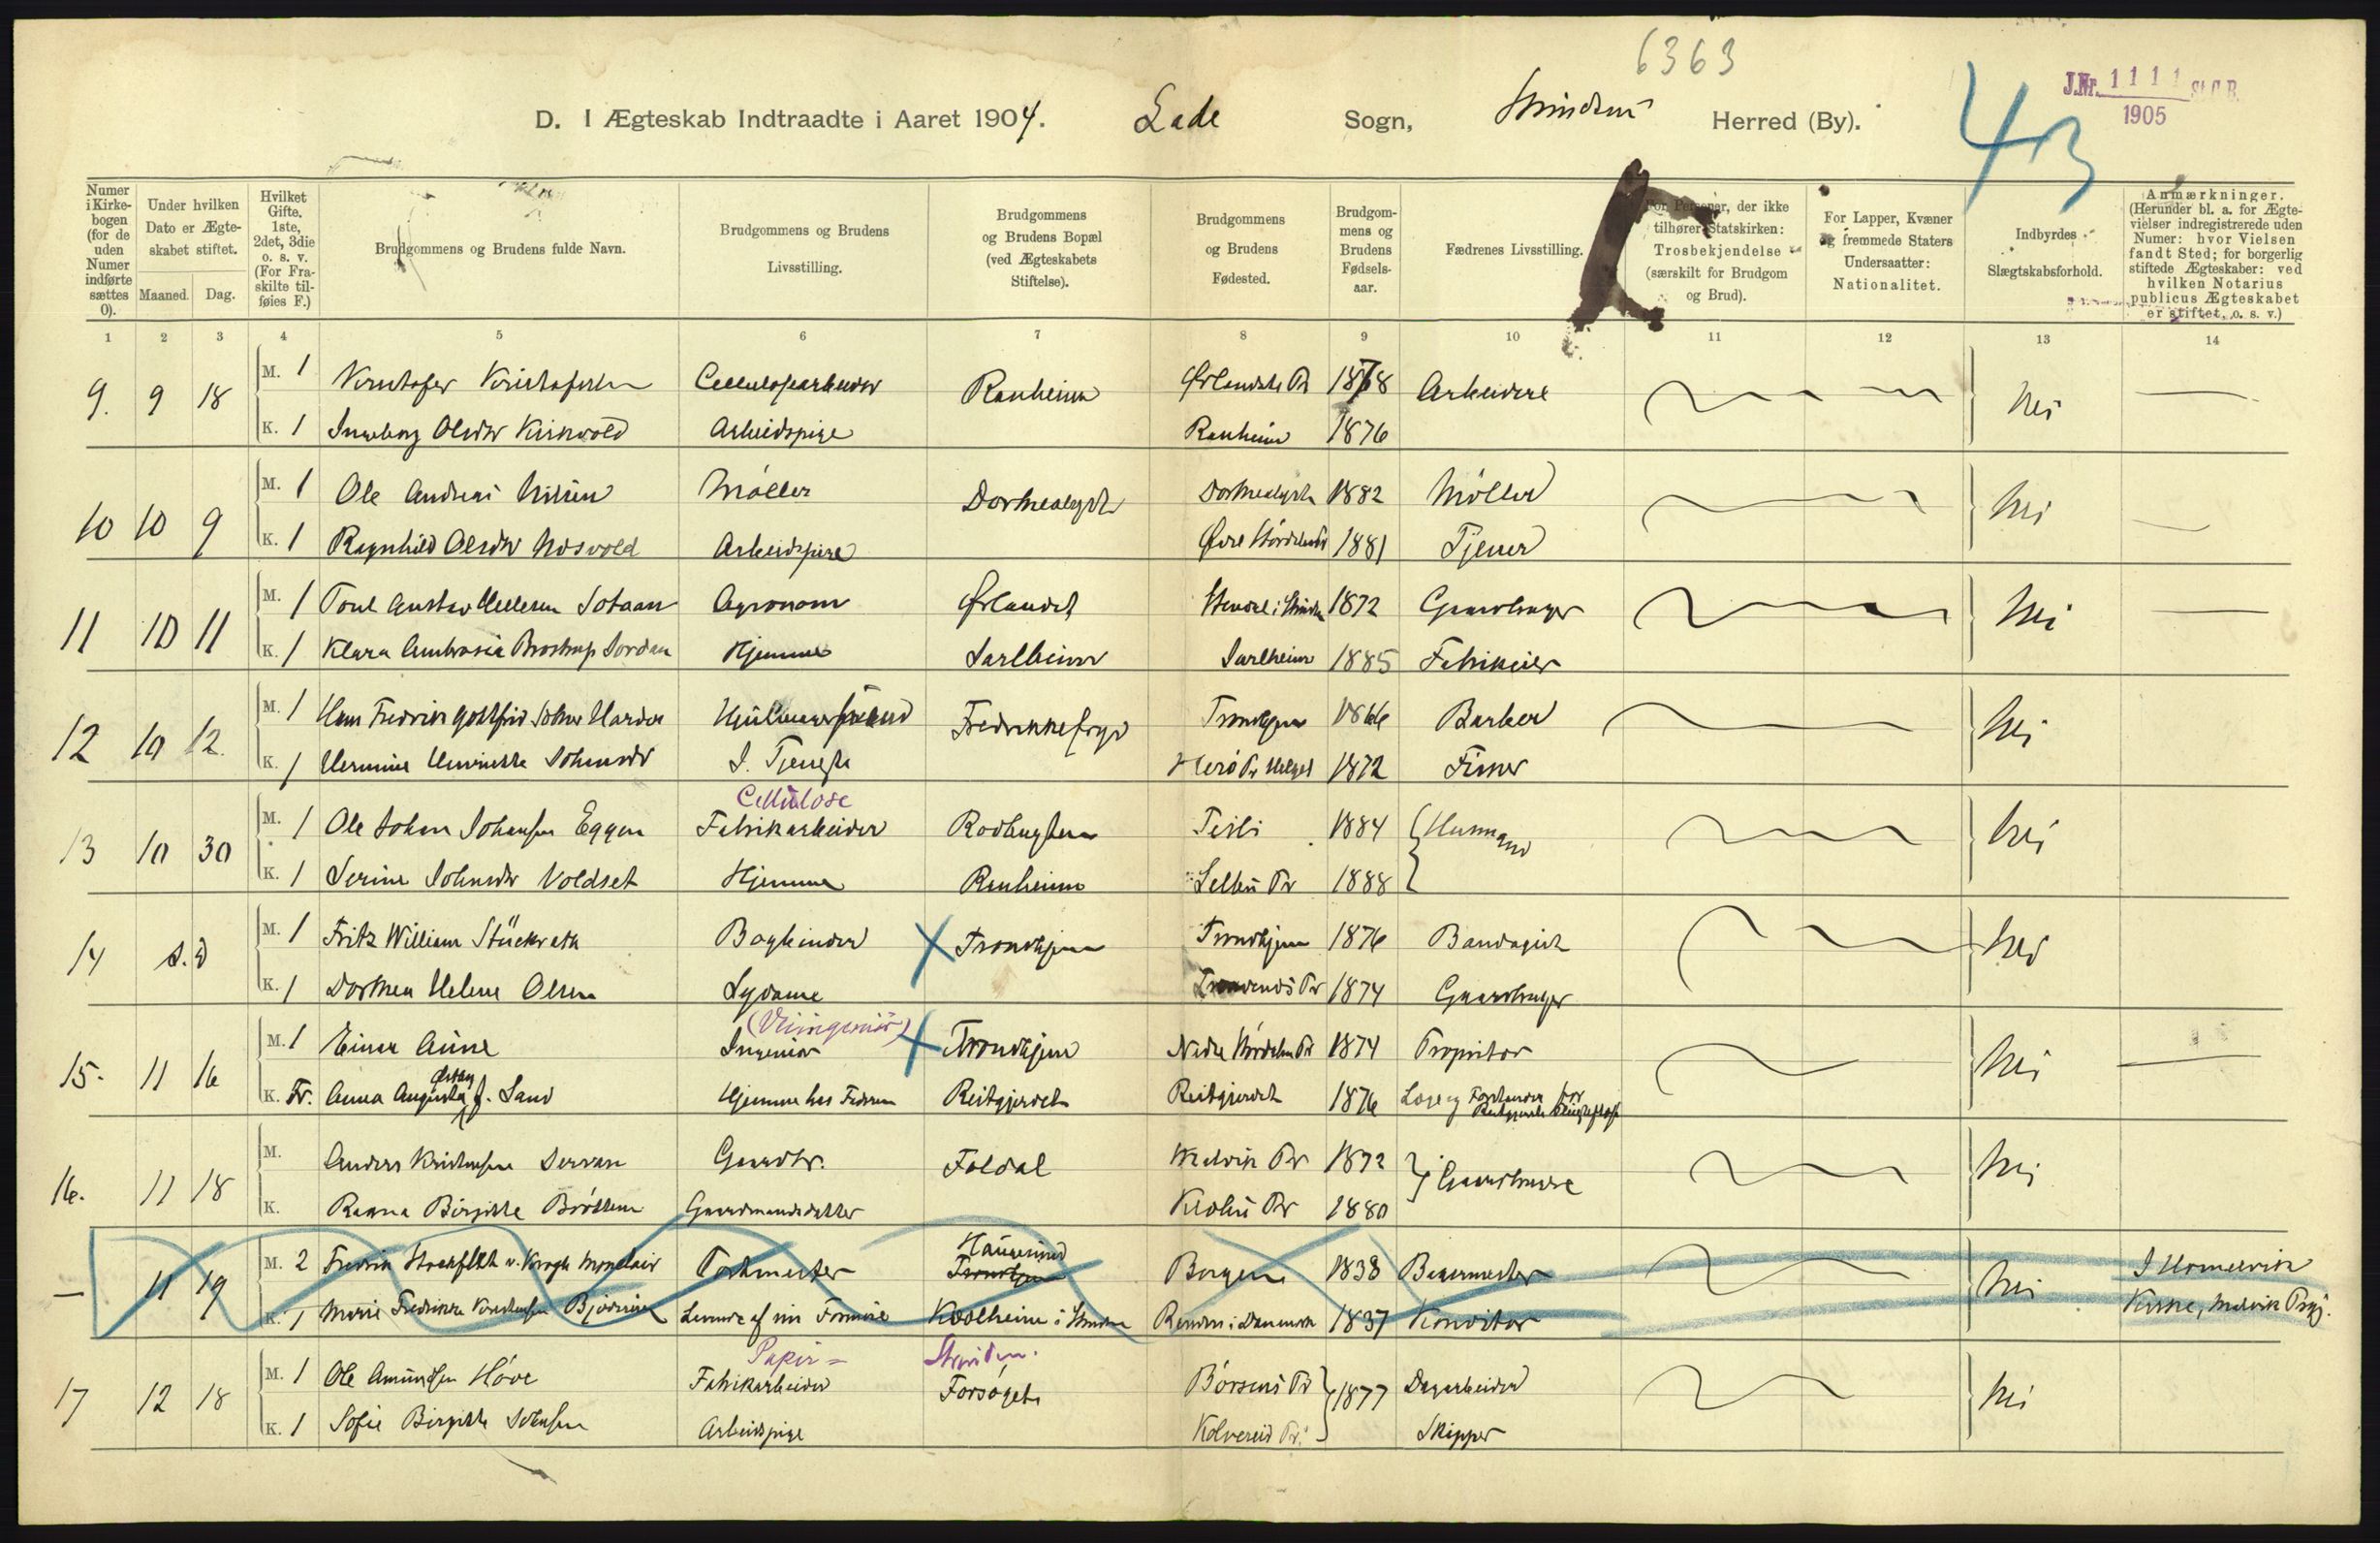 6363
J.Nr. 1111 St.C.B.
1905
43
D. I Ægteskab Indtraadte i Aaret 1904. Lade Sogn, Strinden Herred (By).
Numer i Kirkebogen (for de uden Numer indførte sættes 0).
Under hvilken Dato er Ægteskabet stiftet.
Maaned. Dag.
Hvilket Gifte. 1ste, 2det, 3die o. s. v. (For Fraskilte tilføies F.)
Brudgommens og Brudens fulde Navn.
Brudgommens og Brudens Livsstilling.
Brudgommens og Brudens Bopæl (ved Ægteskabets Stiftelse).
Brudgommens og Brudens Fødested.
Brudgommens og Brudens Fødselsaar.
Fædrenes Livsstilling.
For Personer, der ikke tilhører Statskirken: Trosbekjendelse (særskilt for Brudgom og Brud).
For Lapper, Kvæner og fremmede Staters Undersaatter: Nationalitet.
Indbyrdes Slægtskabsforhold.
Anmærkninger. (Herunder bl. a. for Ægtevielser indregistrerede uden Numer: hvor Vielsen fandt Sted; for borgerlig stiftede Ægteskaber: ved hvilken Notarius publicus Ægteskabet er stiftet, o. s. v.)
1 2 3 4 5 6 7 8 9 10 11 12 13 14
9. 9 18 M. 1 Kristofer Kristofersen Cellulosearbeider Ranheim Ørlandets Pr 1878 Arbeidere Nei
K. 1 Ingeborg Olsdtr Kirkvold Arbeidspige Ranheim 1876
10 10 9 M. 1 Ole Andreas Nilsen Møller Dorthealyst Dorthealyst 1882 Møller Nei
K. 1 Ragnhild Olsdtr Mosvold Arbeidspige Øvre Størdalen 1881 Tjener
11 10 11 M. 1 Poul Gustav Ellesen Sotaan Agronom Ørlandet Stendal i Strinden 1872 Gaardbruger Nei
K. 1 Klara Ambrosia Brostrup Jordan Hjemme Jarlheim Jarlheim 1885 Fabrikeier
12 10 12. M. 1 Hans Fredrik Gottfrid Harder Fredrikkefryd Trondhjem 1866 Barber Nei
K. 1 Hermine Henriette Johnsdtr I. Tjeneste Herø Pr Helgel 1872 Fisker
Cellulose
13 10 30 M. 1 Ole Johan Johansen Eggen Fabrikarbeider Rodbygten Teili 1884 Husmænd Nei
K. 1 Serine Johnsdtr Voldset Hjemme Ranheim Selbu Pr 1888
14 s.d M. 1 Fritz William Stückrath Bogbinder Trondhjem Trondhjem 1876 Bandagist Nei
K. 1 Dorthea Helene Olsen Sydame Pr 1874 Gaardbruger
(Veiingeniør)
15. 11 16 M. 1 Einar Aune Ingeniør Trondhjem Nedre Størdalen Pr 1874 Proprietær Nei
K. Fr. Anna Augusta f. Sand Hjemme hos Fadren Reitgjerdet Reitgjerdet 1876 Læge og Forstander for Reitgjerdet Pleiestiftelse
16. 11 18 M. Anders Kristensen Dervan Gaardbr. Foldal Malvik Pr 1872 Gaardbrugere Nei
K. Ragna Birgitte Brøttem Gaardmandsdatter Klæbu Pr 1880
— 11 19 M. 2 Fredrik Stockfleth v. Krogh Montclair Postmester Haugesund Trondhjem Bergen 1838 Bagermester Nei I Hommelvik
K. 1 Marie Fredrikke Bjørnsen Levende af sin Formue i Strinden Randers i Danmark 1837 Konditor Kirke, Malvik Prgj.
Papir= Strinden.
17 12 18 M. 1 Ole Amundsen Høve Fabrikarbeider Forsøget Børsens Pr 1877 Dagarbeider Nei
K. 1 Sofie Birgitte Johnsen Arbeidspige Kolvereid Pr. Skipper